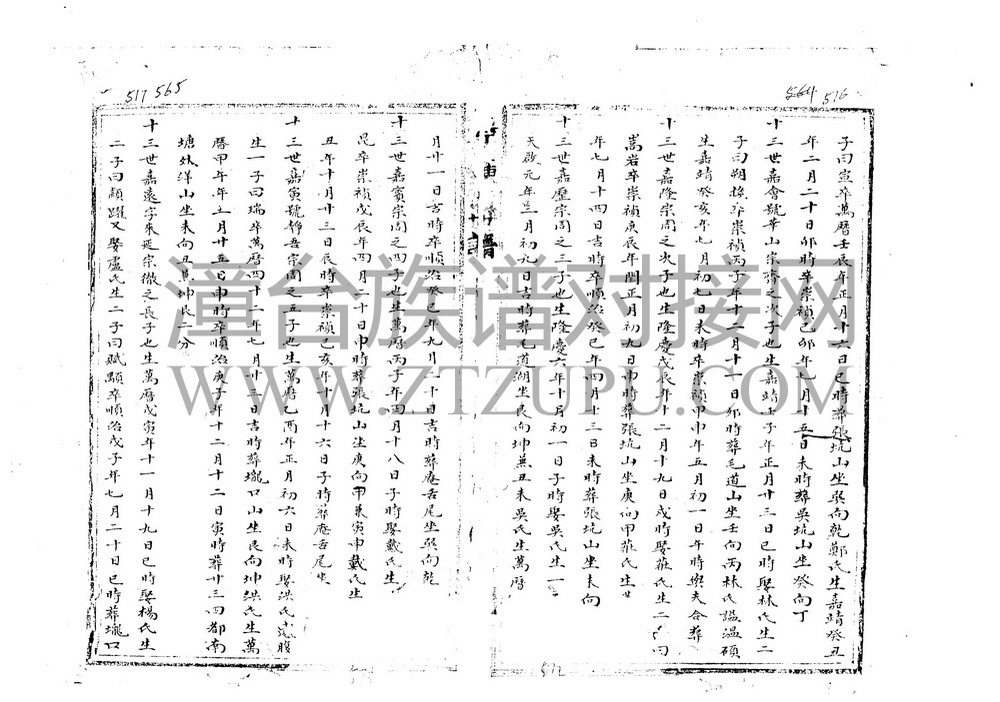 564 516
子曰寅卒萬曆壬辰年正月十六日巳時葬張坑山坐巽向乾鄭氏生嘉靖癸丑
年二月二十日卯時卒崇禎己卯年七月十五日未時葬吳坑山坐癸向丁
十三世嘉會號華山宗齊之次子也生嘉靖壬子年正月廿三日巳時娶林氏生二
子曰朔 卒崇禎丙子年十二月十一日卯時葬毛道山坐壬向丙林氏謚溫碩
生嘉靖癸亥年七月初七日未時卒崇禎甲申年五月初一日午時與夫合葬
十三世嘉隆宗周之次子也生隆慶戊辰年十二月十九日戌時娶莊氏生二子曰
嵩岩卒崇禎庚辰年閏正月初九日申時葬張坑山坐庚向甲莊氏生
年七月十四日吉時卒順治癸巳年四月十三日未時葬張坑山坐未向
十三世嘉歷宗周之三子也生隆慶六年十月初一日子時娶吳氏生一
天啟元年三月初九日吉時葬毛道湖坐艮向坤兼丑未吳氏生萬曆
譜
517 565
月廿一日吉時卒順治癸巳年九月二十日吉時葬庵舌尾坐巽向乾
十三世嘉賓宗周之四子也生萬曆丙子年四月十八日子時娶戴氏生
昆卒崇禎戊辰年四月二十日申時葬張坑山坐庚向甲兼寅申戴氏生
丑年十月廿三日辰時卒崇禎己亥年十月十六日子時葬庵舌尾坐
十三世嘉寅號靜吾宗周之五子也生萬曆己酉年正月初六日未時娶洪氏 腹
生一子曰瑞卒萬曆四十二年七月廿二日吉時葬壠口山坐艮向坤洪氏生萬
曆甲午年五月廿五日申時卒順治庚子年十二月十二日寅時葬廿三四都南
塘 洋山坐未向丑兼坤艮二分
十三世嘉遠字來廷宗徹之長子也生萬曆戊寅年十一月十九日巳時娶楊氏生
二子曰顯躍又娶盧氏生二子曰賦顯卒順治戊子年七月二十日巳時葬壠口
漳台族谱对接网
WWW.ZTZUPU.COM
512